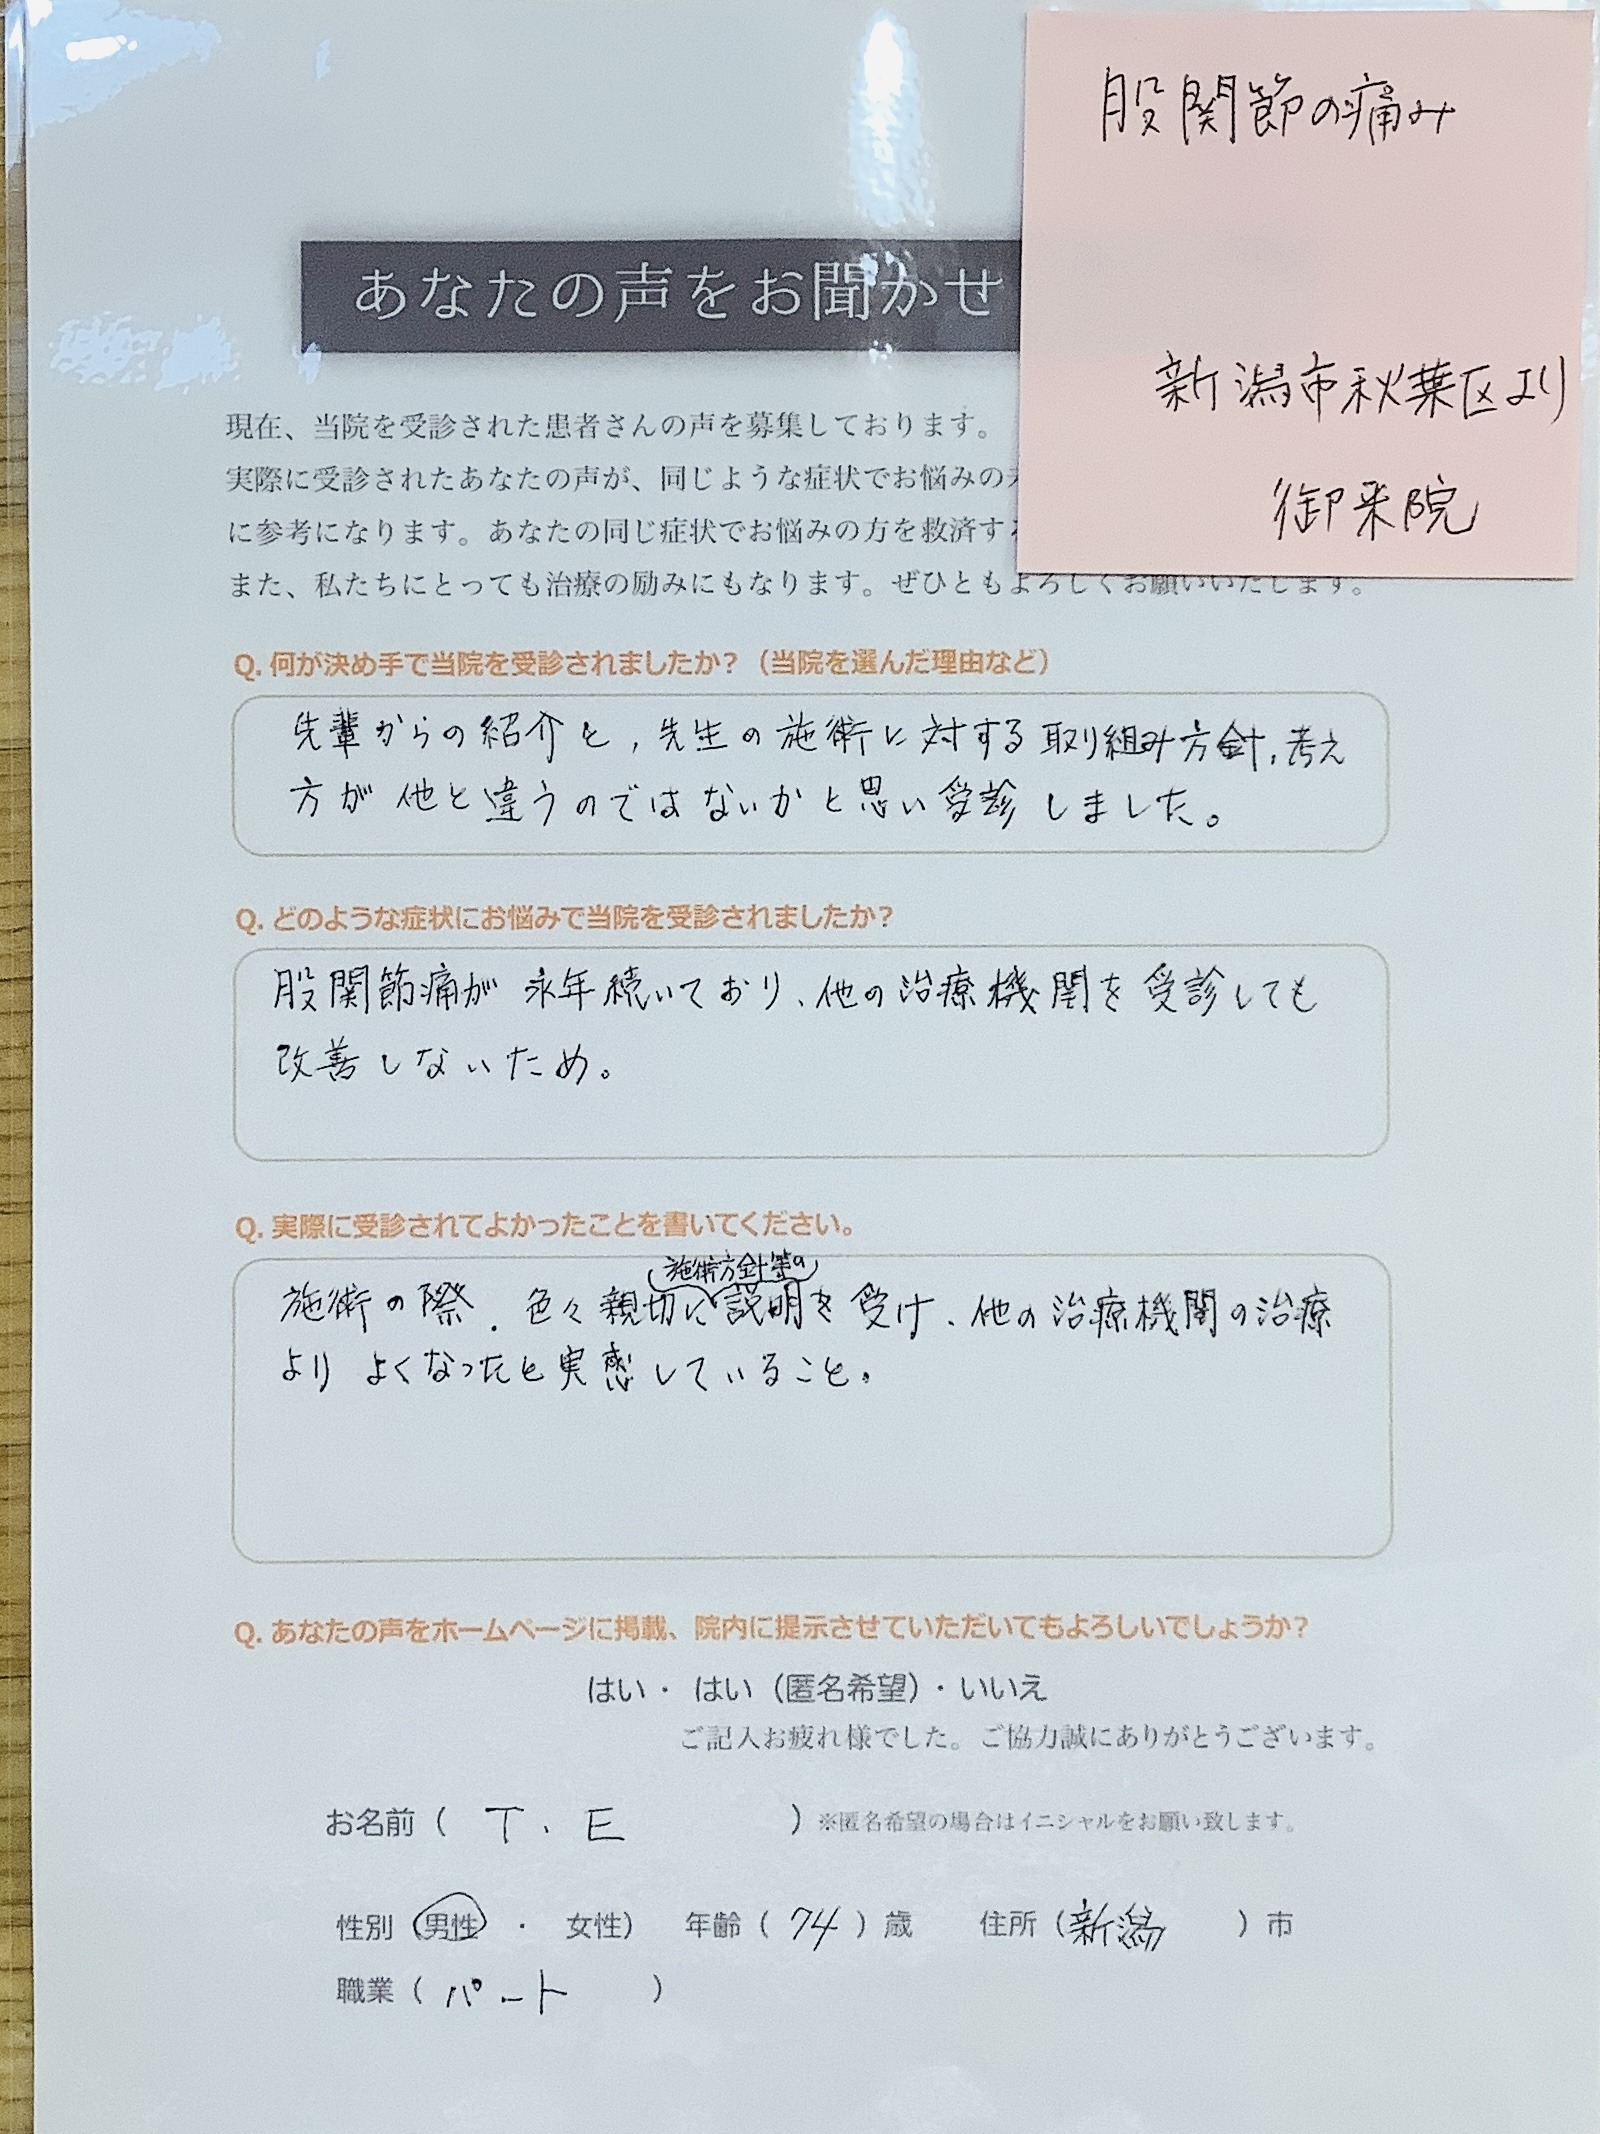 股関節の痛み
新潟市秋葉区より
御来院
あなたの声をお聞かせ
現在、当院を受診された患者さんの声を募集しております。
実際に受診されたあなたの声が、同じような症状でお悩みの
に参考になります。あなたの同じ症状でお悩みの方を救済す
また、私たちにとっても治療の励みにもなります。ぜひともよろしくお願いいたします。
Q. 何が決め手で当院を受診されましたか？（当院を選んだ理由など）
先輩からの紹介と，先生の施術に対する取り組み方針，考え
方が他と違うのではないかと思い受診しました。
Q. どのような症状にお悩みで当院を受診されましたか？
股関節痛が永年続いており、他の治療機関を受診しても
改善しないため。
Q. 実際に受診されてよかったことを書いてください。
施術方針等の
施術の際、色々親切に説明を受け、他の治療機関の治療
よりよくなったと実感していること。
Q. あなたの声をホームページに掲載、院内に提示させていただいてもよろしいでしょうか？
はい・ はい（匿名希望）・いいえ
ご記入お疲れ様でした。ご協力誠にありがとうございます。
お名前（ T．E ）※匿名希望の場合はイニシャルをお願い致します。
性別（男性 ・ 女性） 年齢（ 74 ）歳 住所（新潟 ）市
職業（ パート ）